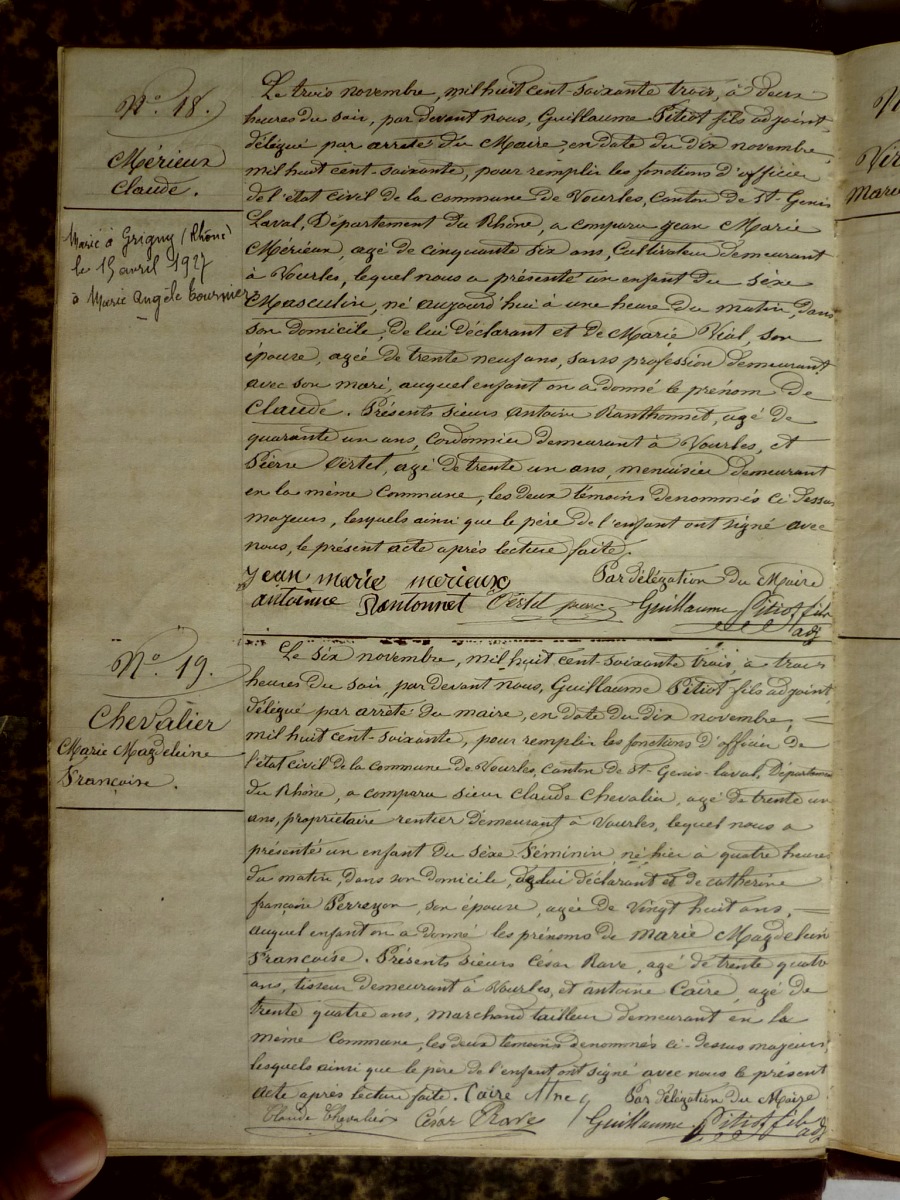 N° 18.
Mérieux
Claude.
Marié à Grigny (Rhône)
le 15 avril 1927
à Marie Angèle Tournier
Le trois novembre, mil huit cent soixante trois, à deux
heures du soir, par devant nous, Guillaume Pitiot fils adjoint
délégué par arrêté du Maire en date du dix novembre
mil huit cent-soixante, pour remplir les fonctions d'officier
de l'état civil de la commune de Vourles, Canton de St-Genis
Laval, Département du Rhône, a comparu Jean Marie
Mérieux, agé de cinquante six ans, Cultivateur demeurant
à Vourles, lequel nous a présenté un enfant du sèxe
Masculin, né aujourd'hui à une heure du matin, dans
son domicile, de lui déclarant et de Marie Vial, son
épouse, agée de trente neuf ans, sans profession demeurant
avec son mari, auquel enfant on a donné le prénom de
Claude. Présents sieurs Antoine Ranthonnet, agé de
quarante un ans, cordonnier demeurant à Vourles, et
Pierre Vértel, agé de trente un ans, menuisier demeurant
en la même Commune, les deux témoins denommés ci dessus
majeurs, lesquels ainsi que le père de l'enfant ont signé avec
nous, le présent acte après lecture faite.
jean marie merieux Par délégation du Maire
antoinne Rantonnet Guillaume Pitiot fils
adj
N° 19.
Chevalier
Marie Magdeleine
Françoise.
Le six novembre, mil huit cent-soixante trois, à trois
heures du soir, par devant nous, Guillaume Pitiot fils adjoint
délégué par arrêté du maire, en date du dix novembre,
mil huit cent-soixante, pour remplir les fonctions d'officier de
l'état civil de la commune de Vourles, canton de St-Genis-laval, Département
du Rhône, a comparu sieur Claude Chevalier, agé de trente un
ans, propriétaire rentier demeurant à Vourles, lequel nous a
présenté un enfant du sèxe Féminin, né hier à quatre heures
du matin, dans son domicile, de lui déclarant et de catherine
françoise Perreyon, son épouse, agée de vingt huit ans,
auquel enfant on a donné les prénoms de Marie Magdeleine
Françoise. Présents sieurs César Rave, agé de trente quatre
ans, tisseur demeurant à Vourles, et antoine Caire, agé de
trente quatre ans, marchand tailleur demeurant en la
même Commune, les deux témoins denommés ci-dessus majeurs,
lesquels ainsi que le père de l'enfant ont signé avec nous le présent
acte après lecture faite. Caire Par délégation du Maire
Claude Chevalier César Rave Guillaume Pitiot fils
adj